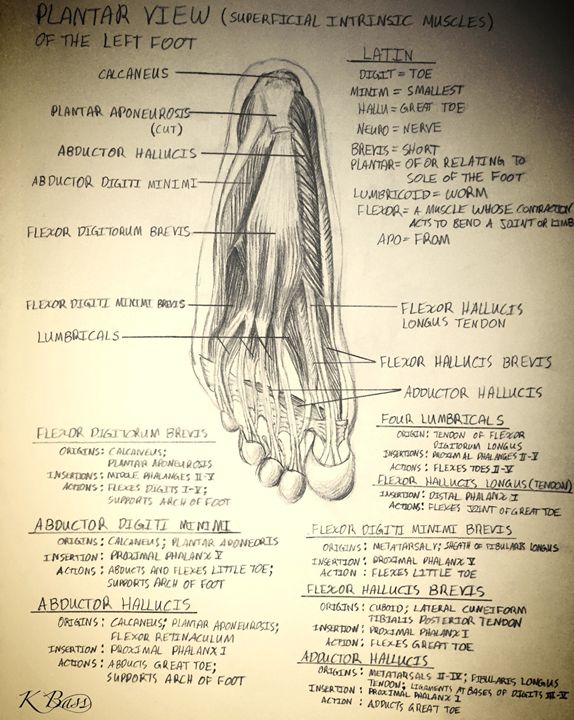 PLANTAR VIEW (SUPERFICIAL INTRINSIC MUSCLES)
OF THE LEFT FOOT
CALCANEUS
PLANTAR APONEUROSIS
(CUT)
ABDUCTOR HALLUCIS
ABDUCTOR DIGITI MINIMI
FLEXOR DIGITORUM BREVIS
FLEXOR DIGITI MINIMI BREVIS
LUMBRICALS
LATIN
DIGIT = TOE
MINIM = SMALLEST
HALLU = GREAT TOE
NEURO = NERVE
BREVIS = SHORT
PLANTAR = OF OR RELATING TO
SOLE OF THE FOOT
LUMBRICOID = WORM
FLEXOR = A MUSCLE WHOSE CONTRACTION
ACTS TO BEND A JOINT OR LIMB
APO = FROM
FLEXOR HALLUCIS
LONGUS TENDON
FLEXOR HALLUCIS BREVIS
ADDUCTOR HALLUCIS
FLEXOR DIGITORUM BREVIS
ORIGINS: CALCANEUS;
PLANTAR APONEUROSIS
INSERTIONS: MIDDLE PHALANGES II-V
ACTIONS: FLEXES DIGITS I-V;
SUPPORTS ARCH OF FOOT
ABDUCTOR DIGITI MINIMI
ORIGINS: CALCANEUS; PLANTAR APONEORIS
INSERTION: PROXIMAL PHALANX V
ACTIONS: ABDUCTS AND FLEXES LITTLE TOE;
SUPPORTS ARCH OF FOOT
ABDUCTOR HALLUCIS
ORIGINS: CALCANEUS; PLANTAR APONEUROSIS;
FLEXOR RETINACULUM
INSERTION: PROXIMAL PHALANX I
ACTIONS: ABDUCTS GREAT TOE;
SUPPORTS ARCH OF FOOT
FOUR LUMBRICALS
ORIGIN: TENDON OF FLEXOR
DIGITORUM LONGUS
INSERTIONS: PROXIMAL PHALANGES II-V
ACTIONS: FLEXES TOES II-V
FLEXOR HALLUCIS LONGUS (TENDON)
INSERTION: DISTAL PHALANX I
ACTIONS: FLEXES JOINT OF GREAT TOE
FLEXOR DIGITI MINIMI BREVIS
ORIGINS: METATARSAL V; SHEATH OF FIBULARIS LONGUS
INSERTION: PROXIMAL PHALANX V
ACTION: FLEXES LITTLE TOE
FLEXOR HALLUCIS BREVIS
ORIGINS: CUBOID; LATERAL CUNEIFORM
TIBIALIS POSTERIOR TENDON
INSERTION: PROXIMAL PHALANX I
ACTION: FLEXES GREAT TOE
ADDUCTOR HALLUCIS
ORIGINS: METATARSALS II-IV; FIBULARIS LONGUS
TENDON; LIGAMENTS AT BASES OF DIGITS III-V
INSERTION: PROXIMAL PHALANX I
ACTION: ADDUCTS GREAT TOE
K Bass